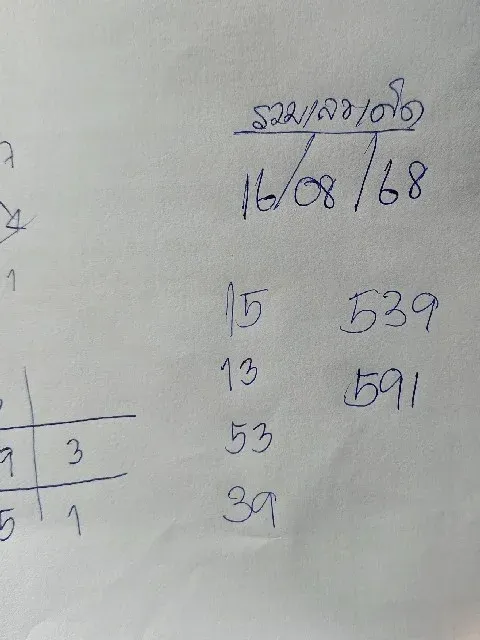 รวมเลขเด็ด
16/08/68
7
1
15 539
13 591
53
39
9 3
5 1